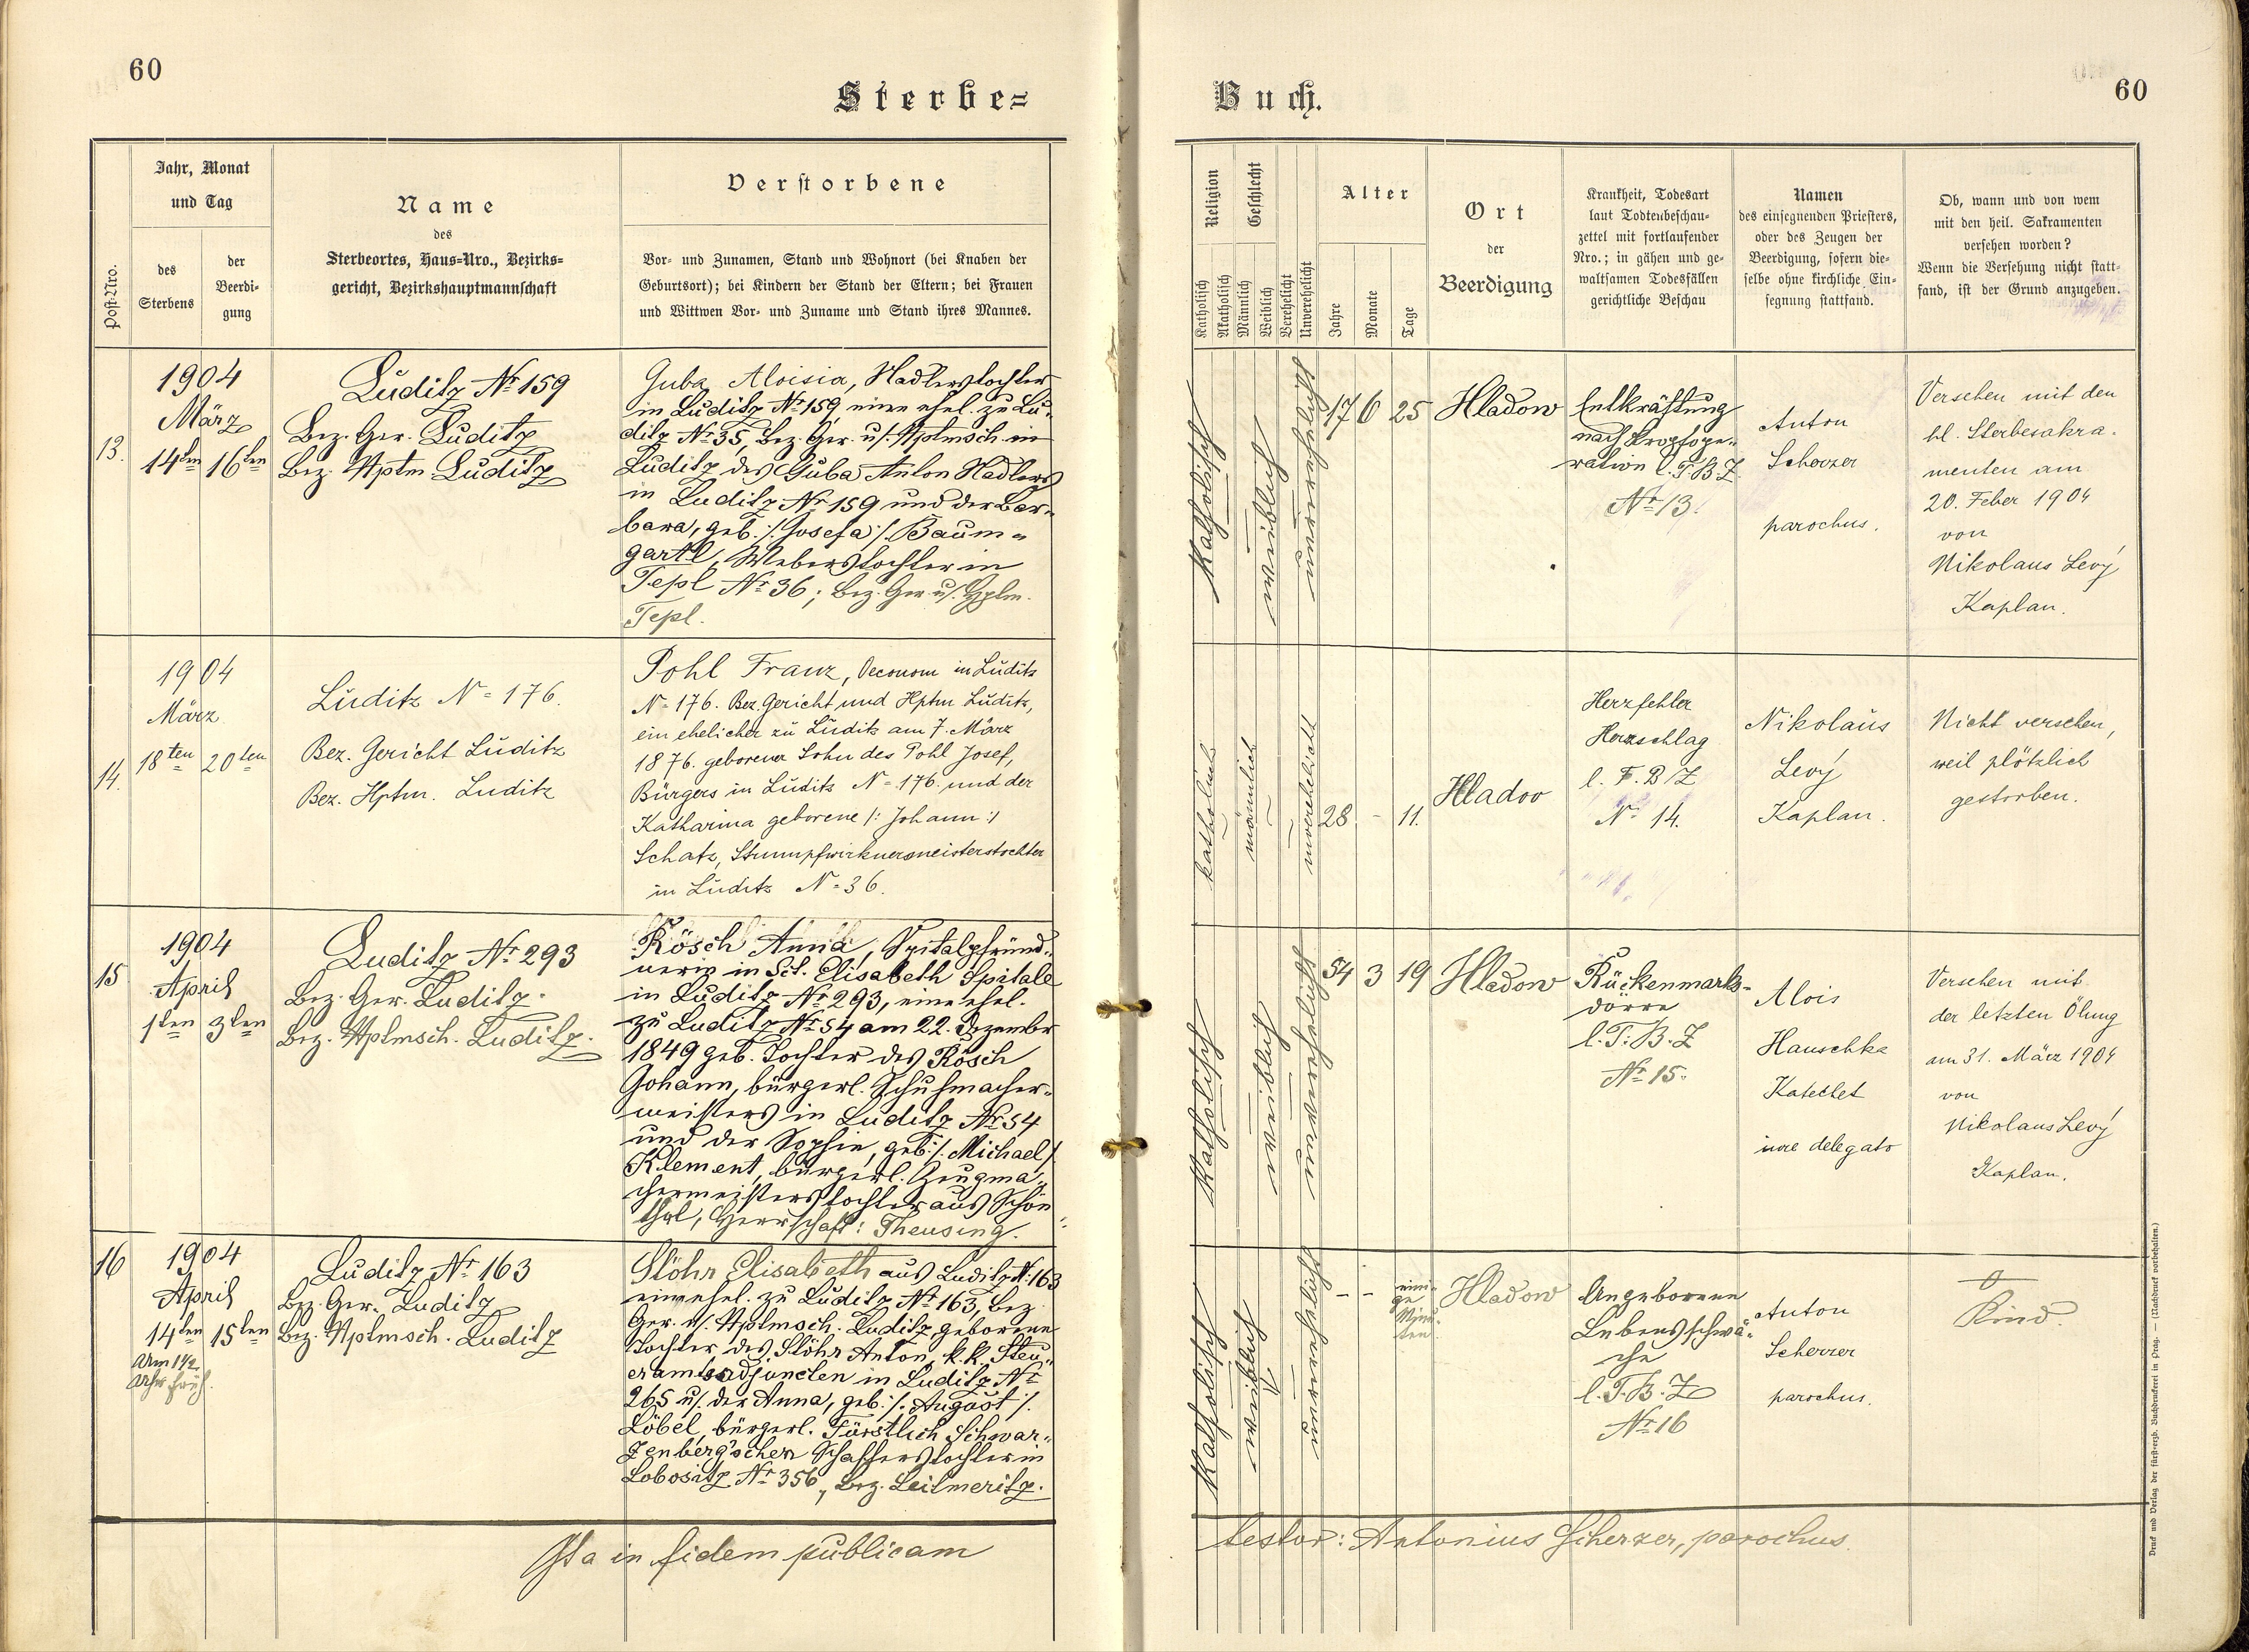 60
Sterbe=
Jahr, Monat
und Tag
Post-Nro.
des
Sterbens
der
Beerdi-
gung
Name
des
Sterbeortes, Haus-Nro., Bezirks-
gericht, Bezirkshauptmannschaft
Verstorbene
Vor- und Zunamen, Stand und Wohnort (bei Knaben der
Geburtsort); bei Kindern der Stand der Eltern; bei Frauen
und Wittwen Vor- und Zuname und Stand ihres Mannes.
13.
1904
März
14ten 16ten
Luditz Nr 159
Bez. Ger. Luditz
Bez. Hptm Luditz
Guba Aloisia, Nadlerstochter
in Luditz Nr 159, eine ehel. zu Lu-
ditz Nr 35, Bez. Ger. u. Hptmsch. in
Luditz des Guba Anton Nadlers
in Luditz Nr 159 und der Bar-
bara, geb. /: Josefa :/ Baum-
gartl, Weberstochter in
Tepl Nr 36; Bez. Ger. u. Hptm.
Tepl.
14.
1904
März
18ten 20ten
Luditz N= 176.
Bez. Gericht Luditz
Bez. Hptm. Luditz
Pohl Franz, Oeconom in Luditz
N= 176. Bez. Gericht und Hptm Luditz,
ein ehelicher zu Luditz am 7. März
1876. geborener Sohn des Pohl Josef,
Bürgers in Luditz N= 176. und der
Katharina geborene /: Johann :/
Schatz, Strumpfwirkermeisterstochter
in Luditz N= 36.
15
1904
April
1ten 3ten
Luditz Nr 293
Bez. Ger. Luditz.
Bez. Hptmsch. Luditz.
Rösch Anna, Spitalpfründ-
nerin in Sct. Elisabeth Spitale
in Luditz Nr 293, eine ehel.
zu Luditz Nr 54 am 22. Dezember
1849 geb. Tochter des Rösch
Johann, bürgerl. Schuhmacher-
meisters in Luditz Nr 54
und der Sophie, geb. /: Michael /
Klement, bürgerl. Zeugma-
chermeisterstochter aus Schön-
thal, Herrschaft: Theusing.
16
1904
April
14ten 15ten
Um 1 1/2
Uhr früh.
Luditz Nr 163
Bez. Ger. Luditz
Bez. Hptmsch. Luditz
Stöhr Elisabeth aus Luditz N: 163
eine ehel. zu Luditz Nr 163, Bez.
Ger. u. Hptmsch. Luditz geborene
Tochter des Stöhr Anton, k. k. Steu-
eramtsadjuncten in Luditz Nr
265 u. der Anna, geb. /: August :/
Löbel, bürgerl. Fürstlich Schwar-
zenberg'schen Schafferstochter in
Lobositz Nr 356, Bez. Leitmeritz.
Ita in fidem publicam
Buch.
60
Religion
Geschlecht
Katholisch
Akatholisch
Männlich
Weiblich
Verehelicht
Unverehelicht
Alter
Jahre
Monate
Tage
Ort
der
Beerdigung
Krankheit, Todesart
laut Todtenbeschau-
zettel mit fortlaufender
Nro.; in gähen und ge-
waltsamen Todesfällen
gerichtliche Beschau
Namen
des einsegnenden Priesters,
oder des Zeugen der
Beerdigung, sofern die-
selbe ohne kirchliche Ein-
segnung stattfand.
Ob, wann und von wem
mit den heil. Sakramenten
versehen worden?
Wenn die Versehung nicht statt-
fand, ist der Grund anzugeben.
Katholisch
weiblich
unverehelicht
17 6 25
Hladow
Entkräftung
nach Kropfope-
ration l. T. B. Z.
Nr 13.
Anton
Scherzer
parochus.
Versehen mit den
hl. Sterbesakra-
menten am
20. Feber 1904
von
Nikolaus Levý
Kaplan.
katholisch
männlich
unverehelicht
28 - 11.
Hladov
Herzfehler
Herzschlag
l. T. B/Z
No 14.
Nikolaus
Levý
Kaplan.
Nicht versehen,
weil plötzlich
gestorben.
Katholisch
weiblich
unverehelicht
54 3 19
Hladow
Rückenmarks-
dörre
l. T. B. Z
Nr 15.
Alois
Hauschka
Katechet
iure delegato
Versehen mit
der letzten Ölung
am 31. März 1904
von
Nikolaus Levý
Kaplan.
Katholisch
weiblich
unverehelicht
- -
eini-
ge
Minu-
ten.
Hladow
Angeborene
Lebensschwä-
che
l. T. B. Z
Nr 16
Anton
Scherzer
parochus.
Kind.
testor: Antonius Scherzer, parochus.
Druck und Verlag der fürsterzb. Buchdruckerei in Prag. — (Nachdruck vorbehalten.)